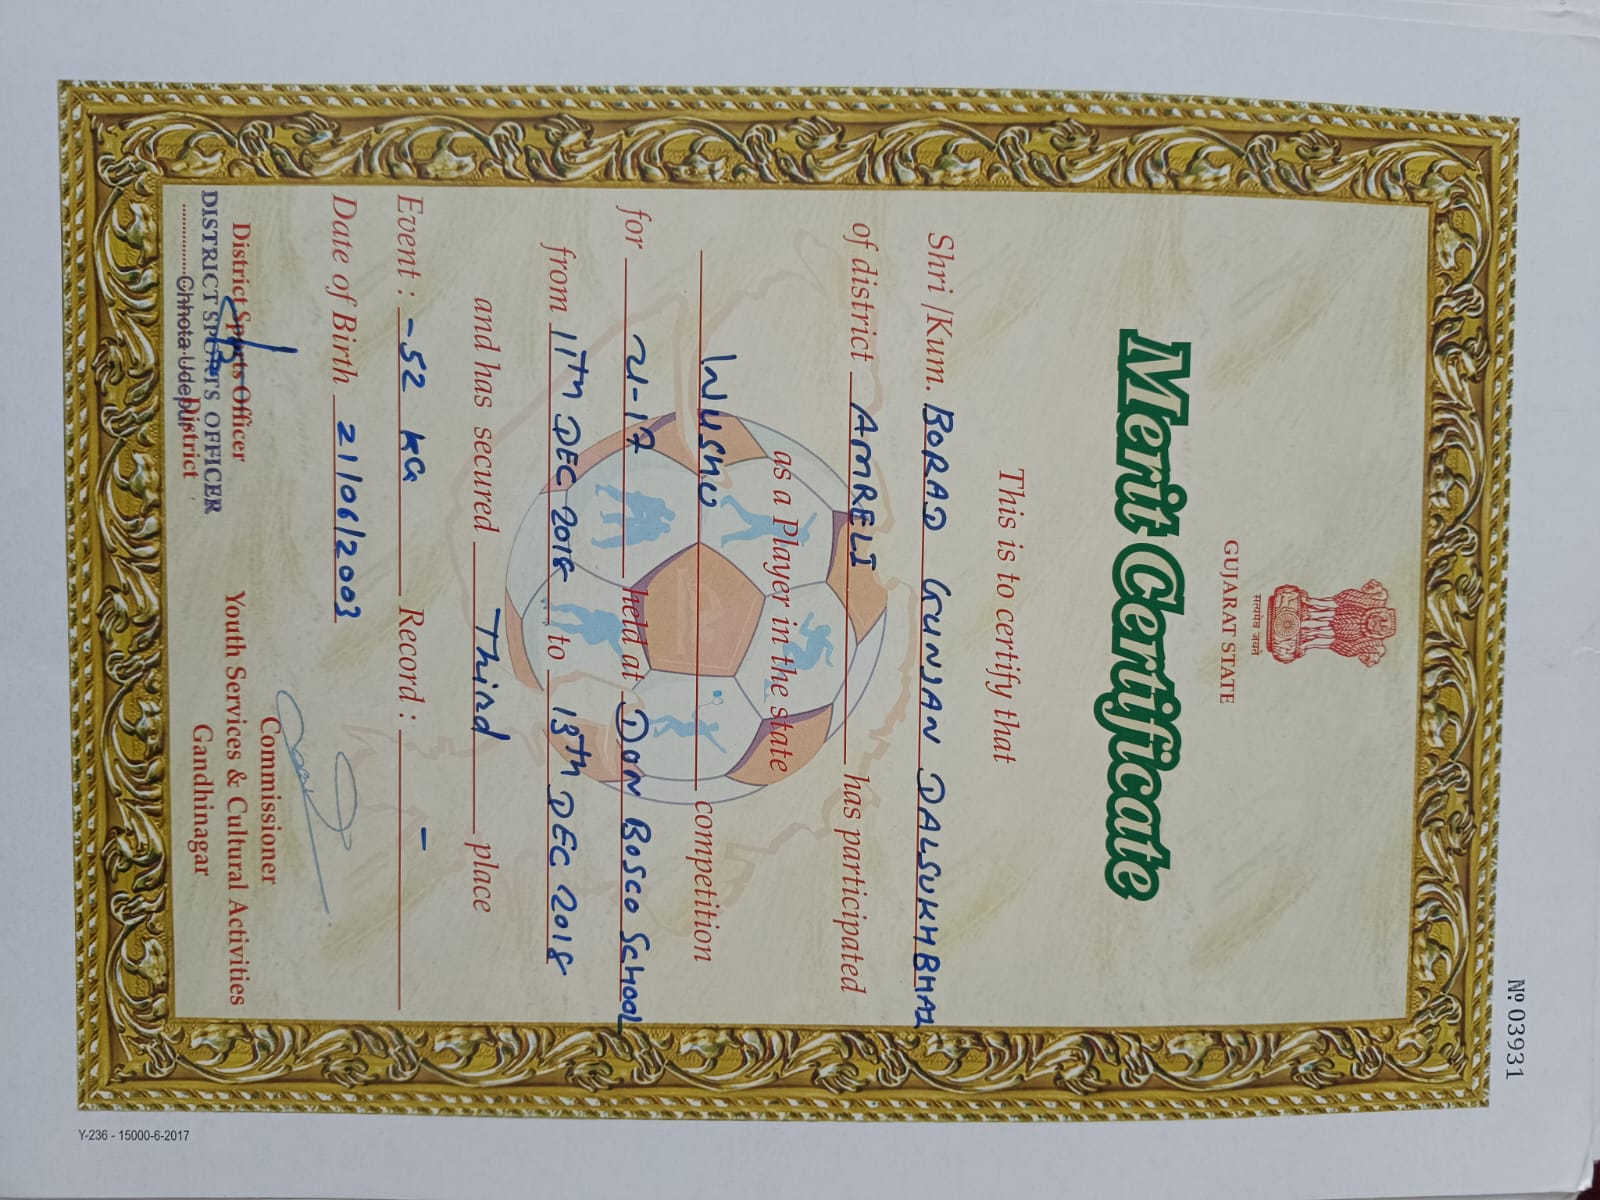 № 03931
सत्यमेव जयते
GUJARAT STATE
Merit Certificate
This is to certify that
Shri /Kum. BORAD GUNJAN DALSUKHBHAI
of district AMRELI has participated
as a Player in the state
WUSHU competition
for U-17 held at DON BOSCO SCHOOL
from 11th DEC 2018 to 13th DEC 2018
and has secured Third place
Event : -52 KG Record : -
Date of Birth 21/06/2003
District Sports Officer
DISTRICT SPORTS OFFICER
Chhota Udepur District
Commissioner
Youth Services & Cultural Activities
Gandhinagar
Y-236 - 15000-6-2017